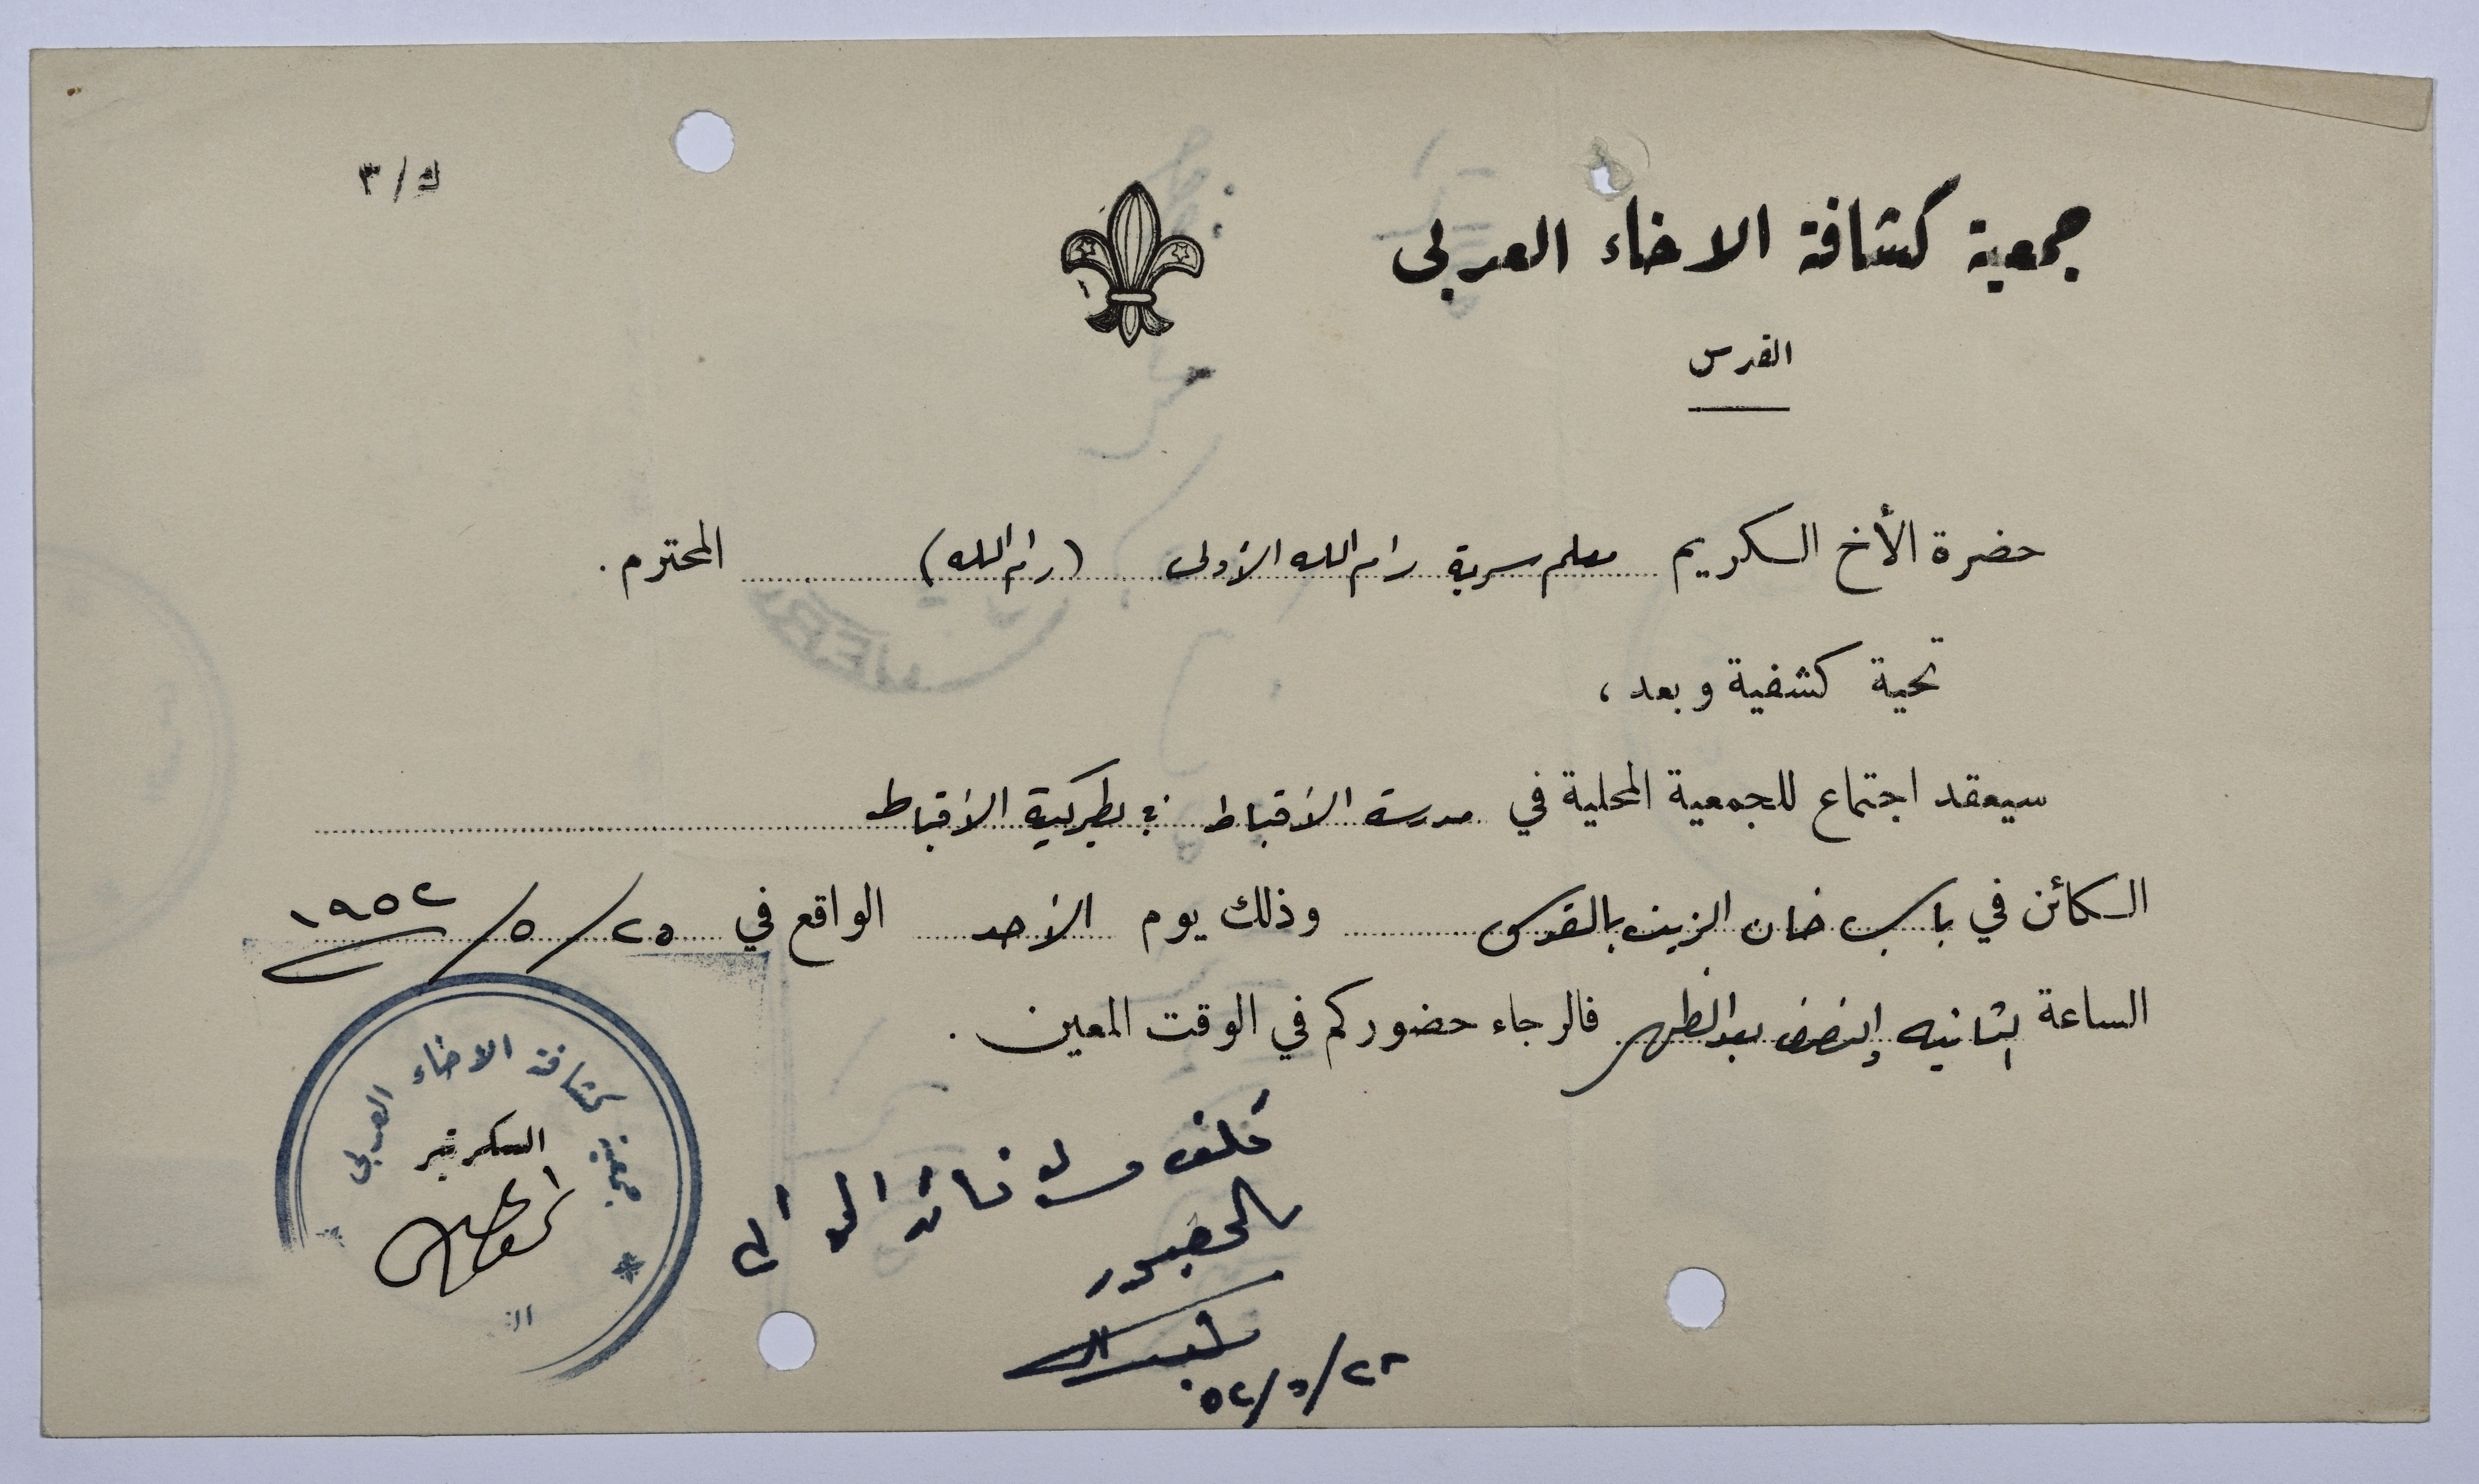 ك/٣
جمعية كشافة الاخاء العربي
القدس
حضرة الأخ الكريم معلم سرية رام الله الأولى (رام الله) المحترم.
تحية كشفية وبعد،
سيعقد اجتماع للجمعية المحلية في مدرسة الأقباط في بطركية الأقباط
الكائن في باب خان الزيت بالقدس وذلك يوم الأحد الواقع في ٢٥/٥/١٩٥٢
الساعة الثانيه والنصف بعد الظهر فالرجاء حضوركم في الوقت المعين.
جمعية كشافة الاخاء العربي
السكرتير
بالحضور
٥٢/٥/٢٣